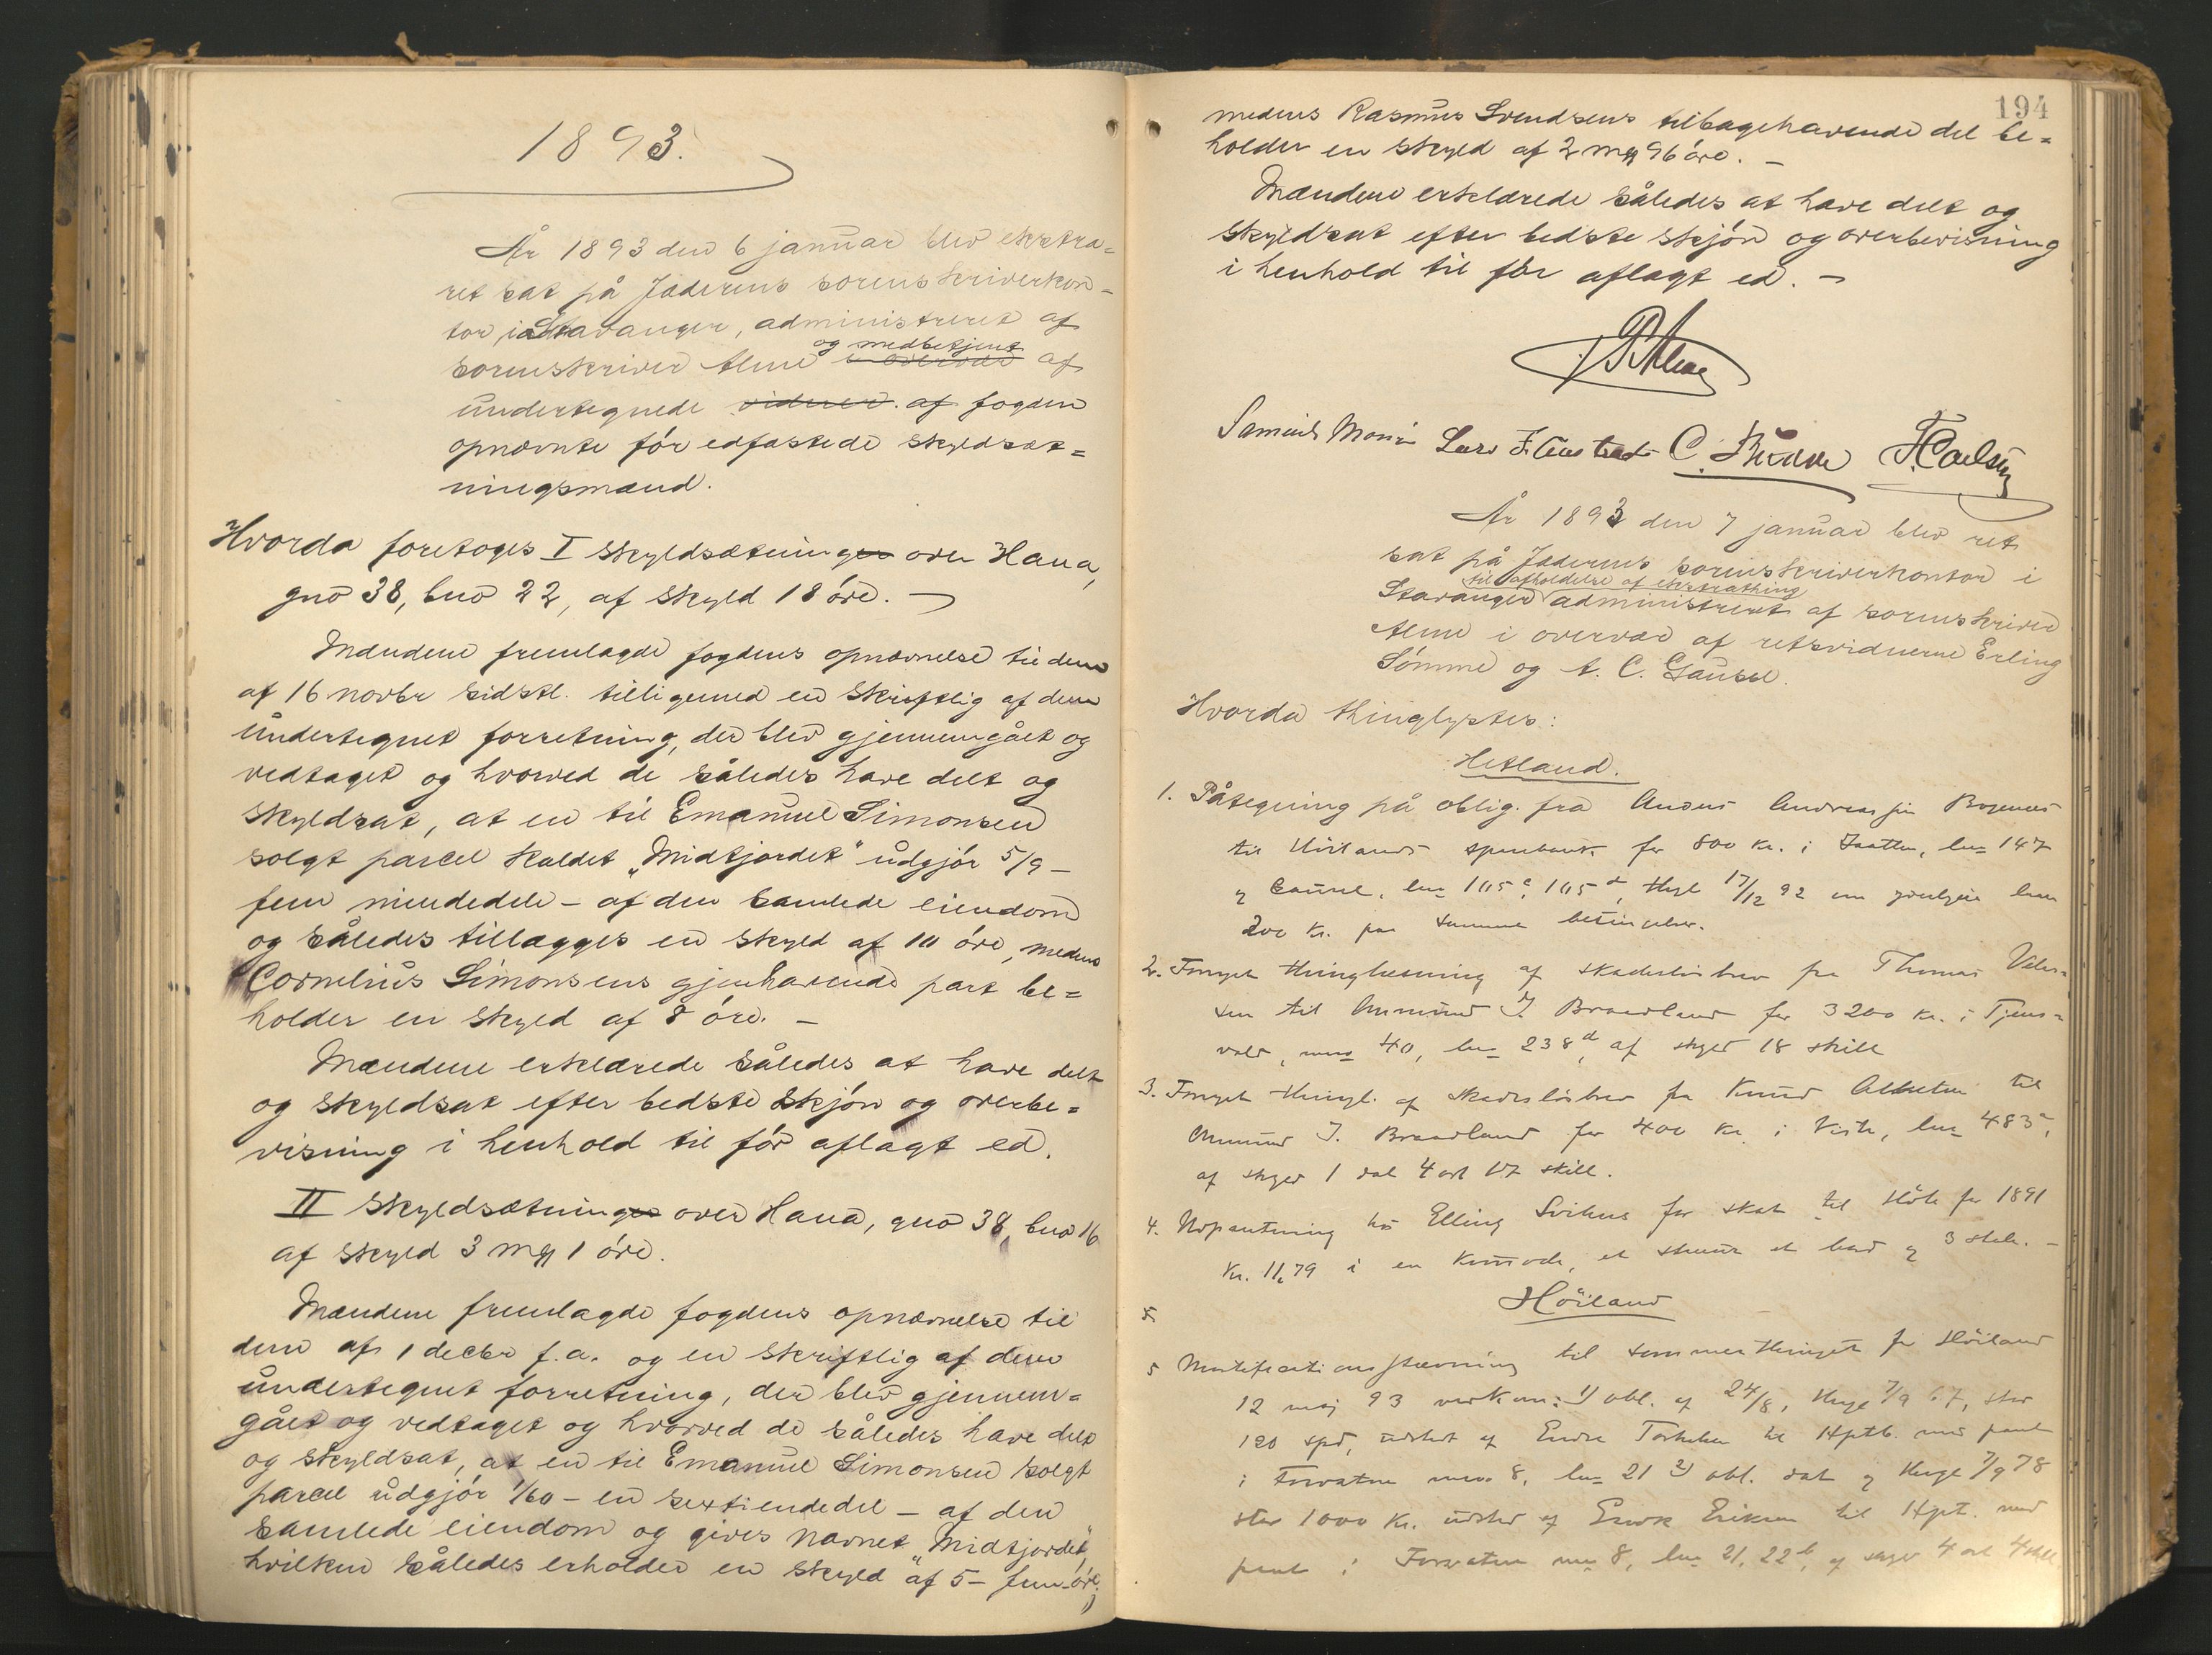 1893.
År 1893 den 6 januar blev ekstra=
ret sat på Jæderens sorenskriverkon=
tor i Stavanger, administreret af
og medbetjent
sorenskriver Alme af
undertegnede viderer. af fogden
opnævnte før edfæstede skyldsæt=
ningsmænd.
Hvorda foretoges I skyldsætningen over Hana,
gno 38, bno 22, af skyld 18 öre. —
Mændene fremlagde fogdens opnævnelse til dem
af 16 novbr sidstl. tilligemed en skriftlig af dem
undertegnet forretning, der blev gjennemgået og
vedtaget og hvorved de således have delt og
skyldsat, at en til Emanuel Simonsen
solgt parcel kaldet „Midtjordet" udgjør 5/9 —
fem niendedele — af den samlede eiendom
og således tillægges en skyld af 10 öre, medens
Cornelius Simonsens gjenhavende part be=
holder en skyld af 8 öre. —
Mændene erklærede således at have delt
og skyldsat efter bedste skjön og overbe=
visning i henhold til för aflagt ed.
II skyldsætningen over Hana, gno 38, bno 16
af skyld 3 mrk 1 öre.
Mændene fremlagde fogdens opnævnelse til
dem af 1 decbr f.a. og en skriftlig af dem
undertegnet forretning, der blev gjennem=
gået og vedtaget og hvorved de således have delt
og skyldsat, at en til Emanuel Simonsen solgt
parcel udgjör 1/60 — en sextiendedel — af den
samlede eiendom og gives navnet „Midtjordet",
hvilken således erholder en skyld af 5 — fem — öre,
194
medens Rasmus Svendsens tilbagehavende del be=
holder en skyld af 2 mrk 96 öre. —
Mændene erklærede således at have delt og
skyldsat efter bedste skjön og overbevisning
i henhold til för aflagt ed. —
Alme
Samuel Lars C. T. Carlsen
År 1893 den 7 januar blev ret
sat på Jæderens sorenskriverkontor i
til afholdelse af ekstrathing
Stavanger administreret af sorenskriver
Alme i overvær af retsvidnerne Erling
Sömme og A. C. Gausel.
Hvorda thinglystes:
Hetland.
1. Påtegning på oblig. fra Andreassen
til Höilands sparebank for 800 kr. i Jaatten, bno 147
og Gausel, bno 105c, 105d, thgl 17/12 92 om
200 kr. paa samme betingelser.
2. Fornyet thinglæsning af skadeslösbrev fra Thomas
sen til Amund J. Braadland for 3200 kr. i Tjens=
vold, mno 40, bno 238d, af skyld 18 skill
3. Fornyet thingl. af skadeslösbrev fra Knud til
Amund J. Braadland for 400 kr. i Viste, bno 483a,
af skyld 1 dal 4 ort 17 skill.
4. Udpantning hos Elling Svihus for skat til Höle for 1891
kr. 11,79 i en kommode, et skrin et bord og 3 stole. —
Höiland
5
5 Mortificationsstævning til sommerthinget for Höiland
12 maj 93 vedkom: 1) obl. af 24/8, thngl 7/9 67, stor
120 spd, udstedt af Endre til Hptb. med pant
i mno 8, bno 21 2) obl. dat og thngl 7/9 78
stor 1000 kr. udsted af Eriksen til Hpt. med
pant i mno 8, bno 21, 22b, af skyld 4 ort 4 skill